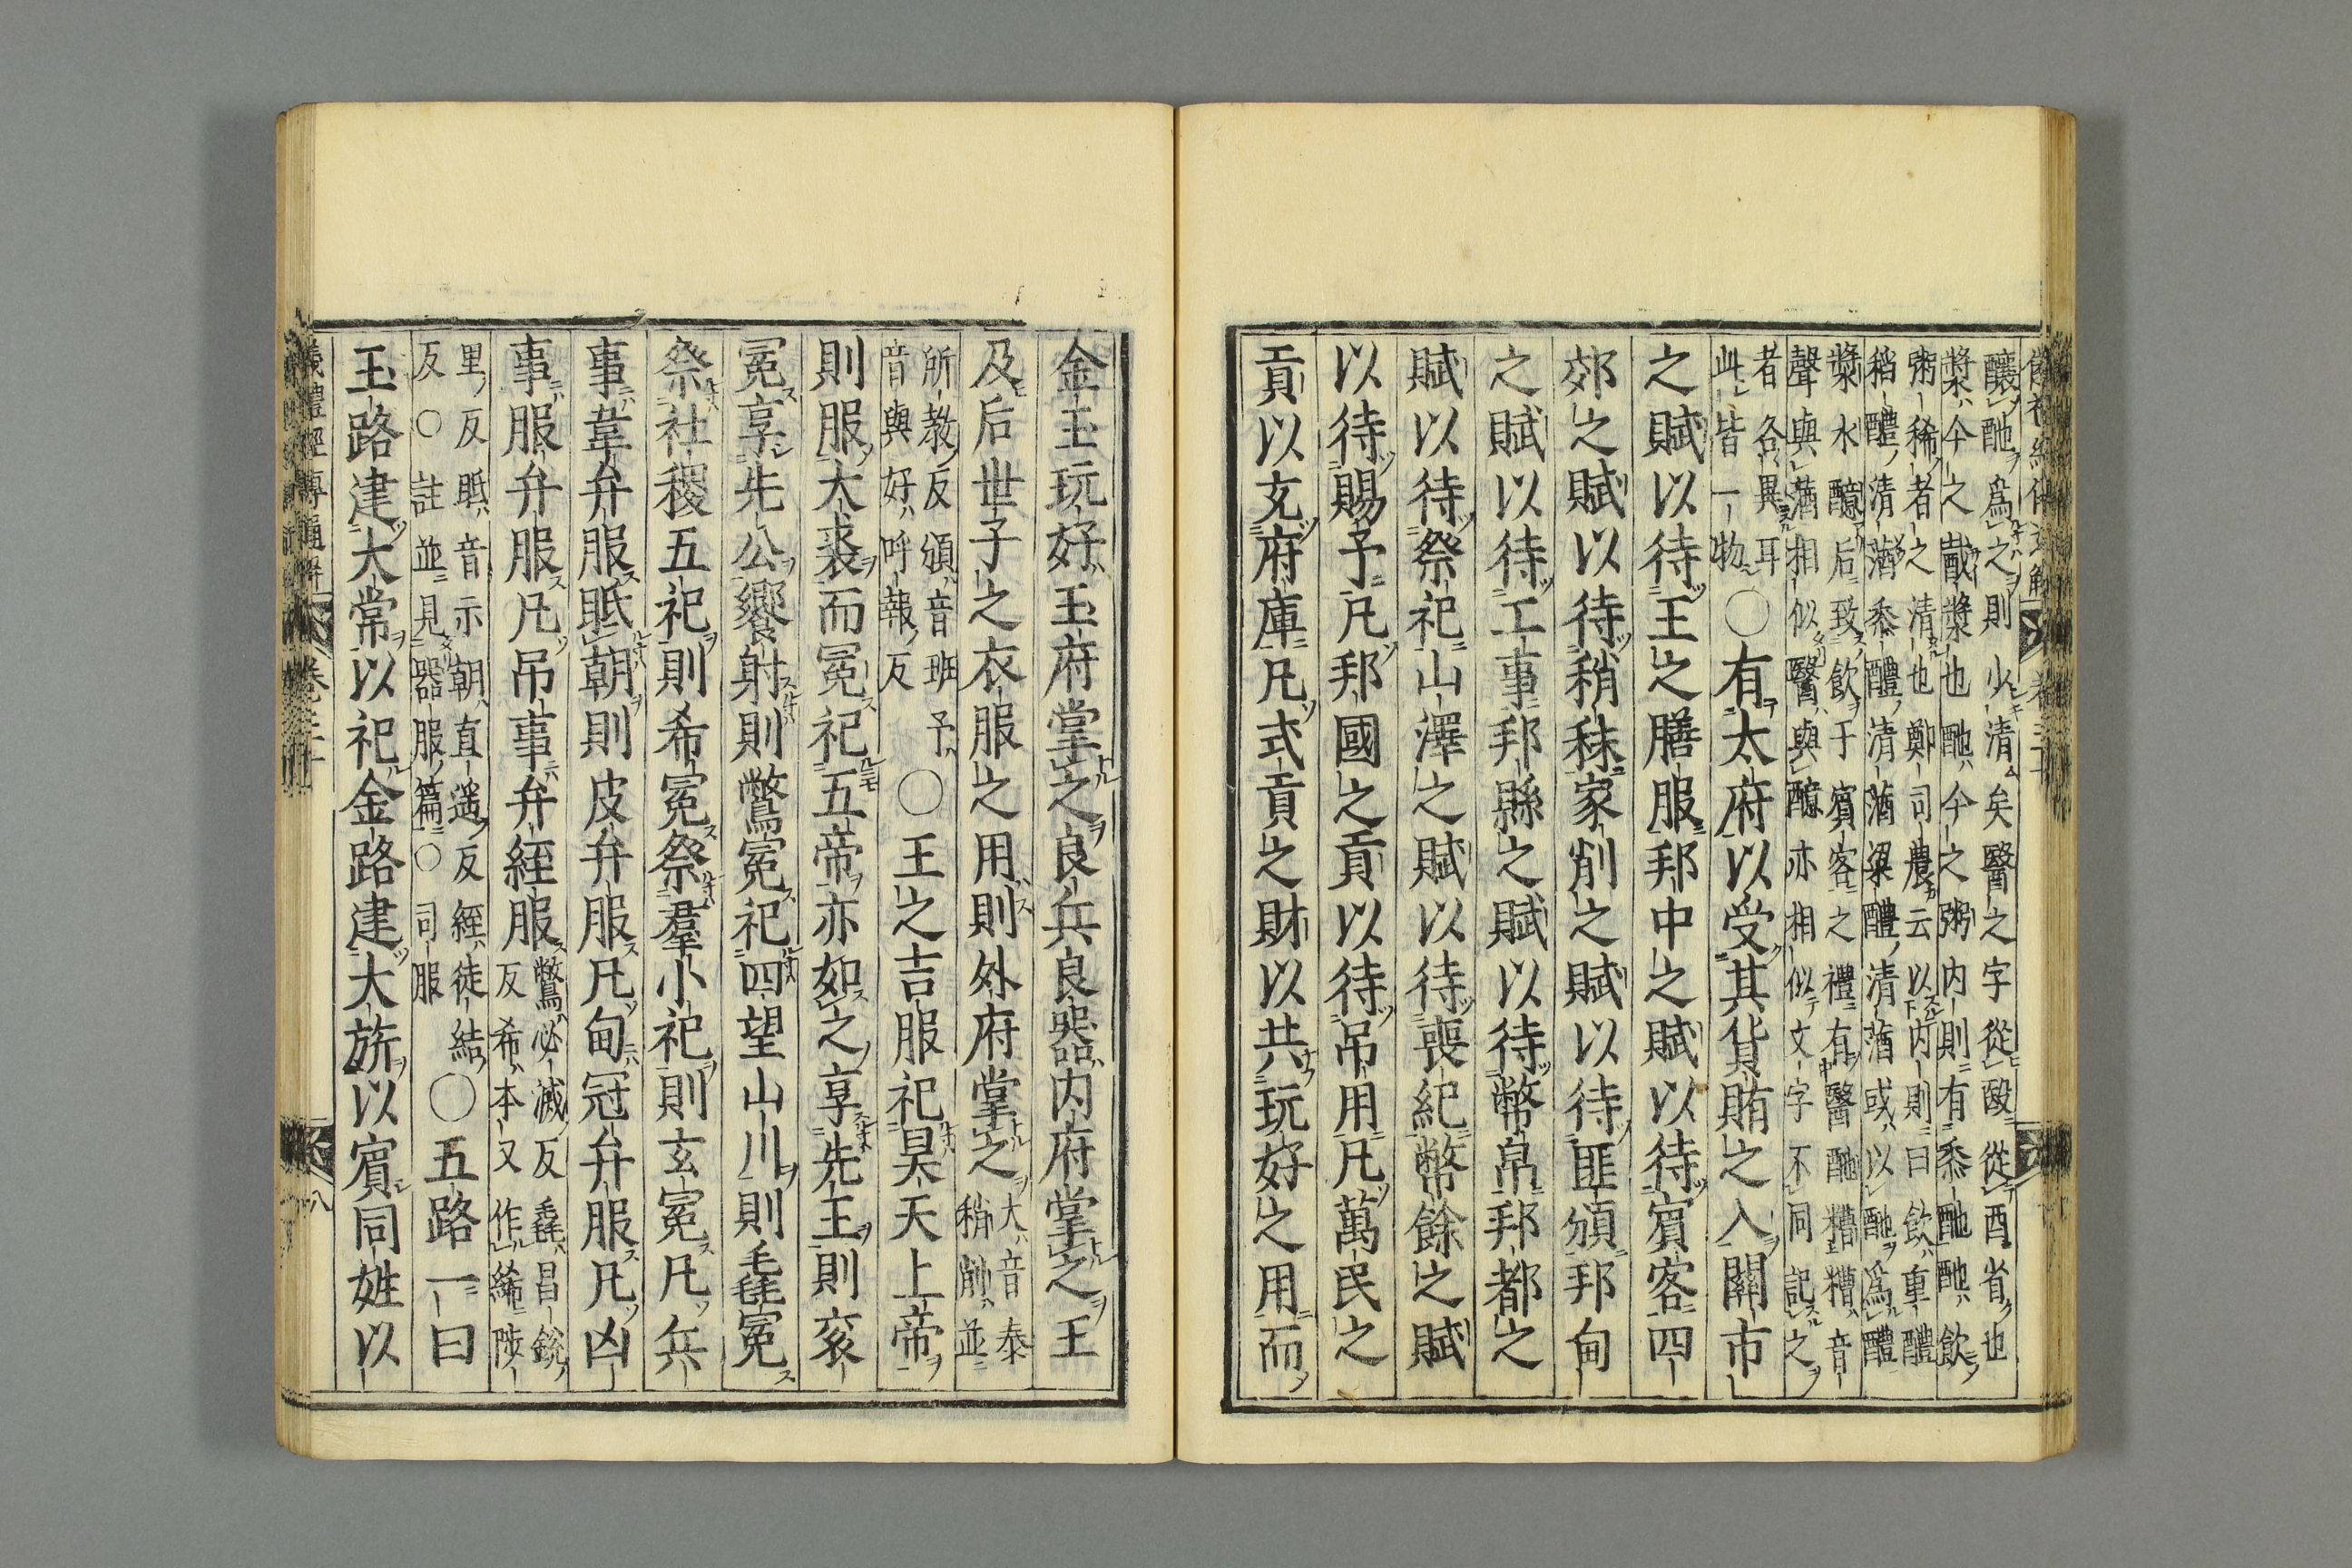 釀酏爲之則少清矣醫之字從殹從酉省也
漿今之酨漿也酏今之粥內則有黍酏酏飲
粥稀者之清也鄭司農云以内則曰飲重醴
稻醴清䣼黍醴清䣼粱醴清䣼或以酏爲醴
漿水醷后致飲于賓客之禮有醫酏糟糟音
聲與䣼相似醫與醷亦相似文字不同記之
者各異耳
此皆一物〇有太府以受其貨賄之入關市
之賦以待王之膳服邦中之賦以待賓客四
郊之賦以待稍秣家削之賦以待匪頒邦甸
之賦以待工事邦縣之賦以待幣帛邦都之
賦以待祭祀山澤之賦以待喪紀幣餘之賦
以待賜予凡邦國之貢以待吊用凡萬民之
貢以充府庫凡式貢之財以共玩好之用而
金玉玩好玉府掌之良兵良器内府掌之王
及后世子之衣服之用則外府掌之大音泰
稍削並
所教反頒音班予
音與好呼報反〇王之吉服祀昊天上帝
則服大裘而冕祀五帝亦如之享先王則衮
冕享先公饗射則鷩冕祀四望山川則毳冕
祭社稷五祀則希冕祭羣小祀則玄冕凡兵
事韋弁服眡朝則皮弁服凡甸冠弁服凡凶
事服弁服凡吊事弁絰服鷩必滅反毳昌銳
反希本又作絺陟
里反眡音示朝直遥反絰徒結
反〇註並見器服篇〇司服〇五路一曰
玉路建大常以祀金路建大旂以賓同姓以
儀禮經傳通解
卷三十
八